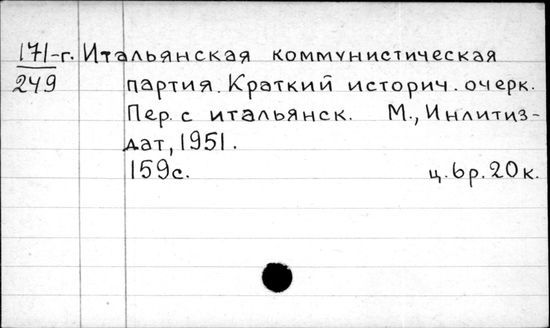 171-г. Итальянская коммунистическая
249 партия. Краткий историч. очерк.
Пер. с итальянск. М., Инлитиз-
дат, 1951.
159с. ц. 6р. 20к.